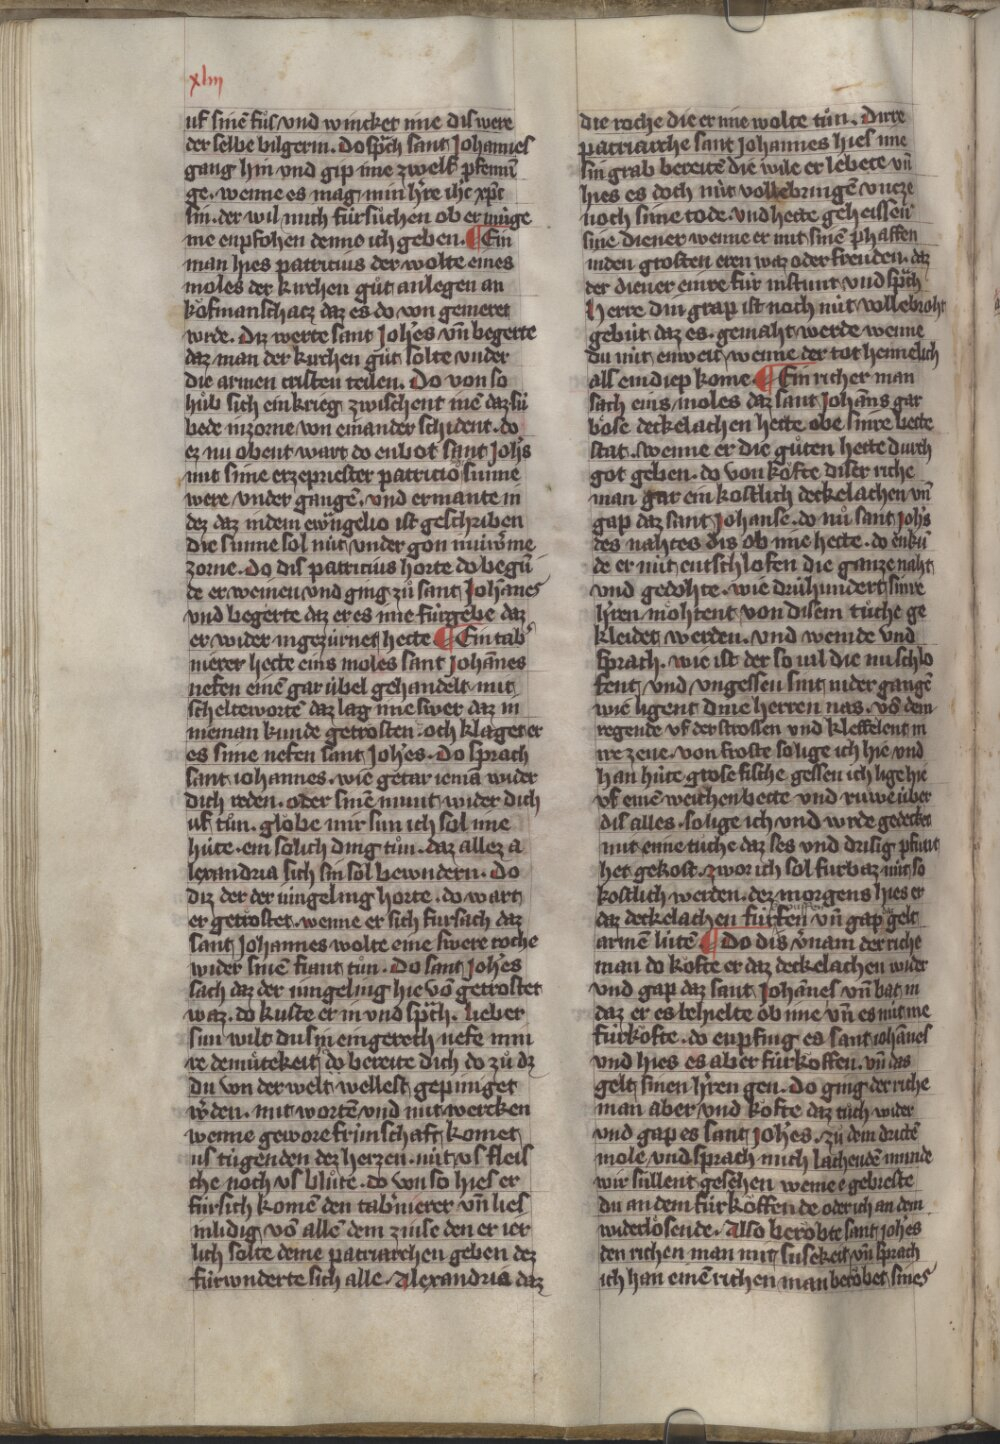 xliiij
uf sinē fůs vnd wincket ime dis were
der selbe bilgerin. do spͣch sant Johannes
gang hin vnd gip ime zwelf pfennī
ge. wenne es mag min hṙre ihc xp̄c
sin. der wil mich fúrsůchen ob er múge
me enpfohen denne ich geben. ¶ Ein
man hies patricius der wolte eines
moles der kirchen gůt anlegen an
kǒfmanschatz daz es do von gemeret
wrde. Diz werte sant Joh̄es vn̄ begerte
daz man der kirchen gůt solte vnder
die armen cristen teilen. Do von so
hůb sich ein krieg zwischent inē daz sú
bede in zorne von einander schident. do
ez nu obent wart do enbot sant Joh̄s
mit sime erzepriester patricio sunne
were vnder gangē. vnd ermante in
dez daz in dem ewāngelio ist geschriben
die sunne sol nút vnder gon in úwṙme
zorne. Do dis patricius horte do begū
de er weinen vnd ging zů sant Johānes
vnd begerte daz er es ime fúrgebe daz
er wider in gezúrnet hette ¶ Ein tab̓
nierer hette eins moles sant Johānes
nefen einē gar úbel gehandelt mit
schelteworten daz lag ime swer daz in
nieman kunde getrosten. och klaget er
es sime nefen sant Joh̄es. Do sprach
sant iohannes. wie getar iemā wider
dich reden. oder sinē munt wider dich
uf tůn. globe mir sun ich sol ime
húte. ein solich ding tůn. daz allez a
lexandria sich sin sol bewndern. Do
diz der der iungeling horte. do wart
er getrostet. wenne er sich fursach daz
sant Johannes wolte eine swere roche
wider sinē fiant tůn. Do sant Joh̄es
sach daz der iungeling hie vō getrostet
waz. do kuste er in vnd spͣch. lieber
sun wilt du sin ein gerech nefe mni
re demůtekeit do bereite dich do zů dz
du von der welt wellest gepinget
ẇden. mit wortē vnd mit wercken
wenne gewore frúnschaft komet
us tugenden dez herzen. nút vs fleis
che noch vs blůte. do von so hies er
fúr sich komē den tab̓nierer vn̄ lies
in lidig vō allē dem zinse den er ier
lich solte deme patriarchen geben dez
fúrwnderte sich alle Alexandria daz
die roche die er ime wolte tůn. Dirre
patriarche sant Johannes hies ime
sin grab bereitē die wile er lebete vn̄
hies es doch nút vollebringē vncze
noch sime tode. vnd hette geheissen
sine diener wenne er mit sinē phaffen
in den grosten eren waz oder freuden. daz
der diener einre fúr in stunt vnd spͣch
herre din grap ist noch nút volle broht
gebút daz es. gemaht werde wenne
du nút enweit wenne der tot heimelich
als ein diep kome ¶ Ein richer man
sach eins moles daz sant Johāns gar
bóse deckelachen hette obe sinre bette
stat. wenne er die gůten hette durch
got geben. do von kǒfte diser riche
man gar ein kostlich deckelachen vn̄
gap daz sant Johanse. do nů sant Joh̄s
des nahtes dis ob ime hette. do enkū
de er nút entschlofen die ganze naht
vnd gedohte. wie drúhundert sinre
hṙren mohtent von disem tůche ge
kleidet werden. vnd weinde vnd
sprach. wie ist der so vil die nu schlo
fent vnd vngessen sint nider gangē
wie ligent dine herren nas. vō dem
regende vf der strossen vnd kleffelent in
ire zene. von froste so lige ich hie vnd
han húte grose fische gessen ich lige hie
vf einē weichen bette vnd růwe úber
dis alles. so lige ich vnd wrde gedecket
mit eime tůche daz ses vnd drisig pfunt
het gekost. zwor ich sol furbaz nút so
kostlich werden. dez morgens hies er
daz deckelachen fúrkǒfen vn̄ gap dz gelt
armē lútē ¶ Do dis v̓nam der riche
man do kǒfte er daz deckelachen wider
vnd gap daz sant Johānes vn̄ bat in
daz er es behielte ob ime vn̄ es nút me
fúrkǒfte. do enpfing es sant iohānes
vnd hies es aber fúrkǒffen. vn̄ das
gelt sinen hṙren gen. Do ging der riche
man aber vnd kǒfte daz tůch wider
vnd gap es sant Joh̄es. zů dem dritē
mole vnd sprach mich lachendē munde
wir súllent gesehen weme e gebreste
du an dem fúrkǒffende oder ich an dem
wider lósende. Also berǒbte sant joh̄es
den richen man mit sůsekeit vn̄ sprach
ich han einē richen man berǒbet sines